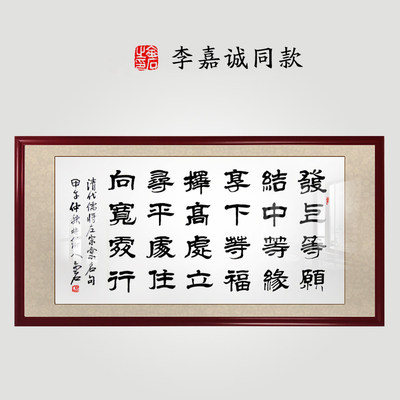 李嘉诚同款
發上等願
結中等緣
享下等福
擇高處立
尋平處住
向寬處行
清代儒將左宗棠名句
甲午仲秋